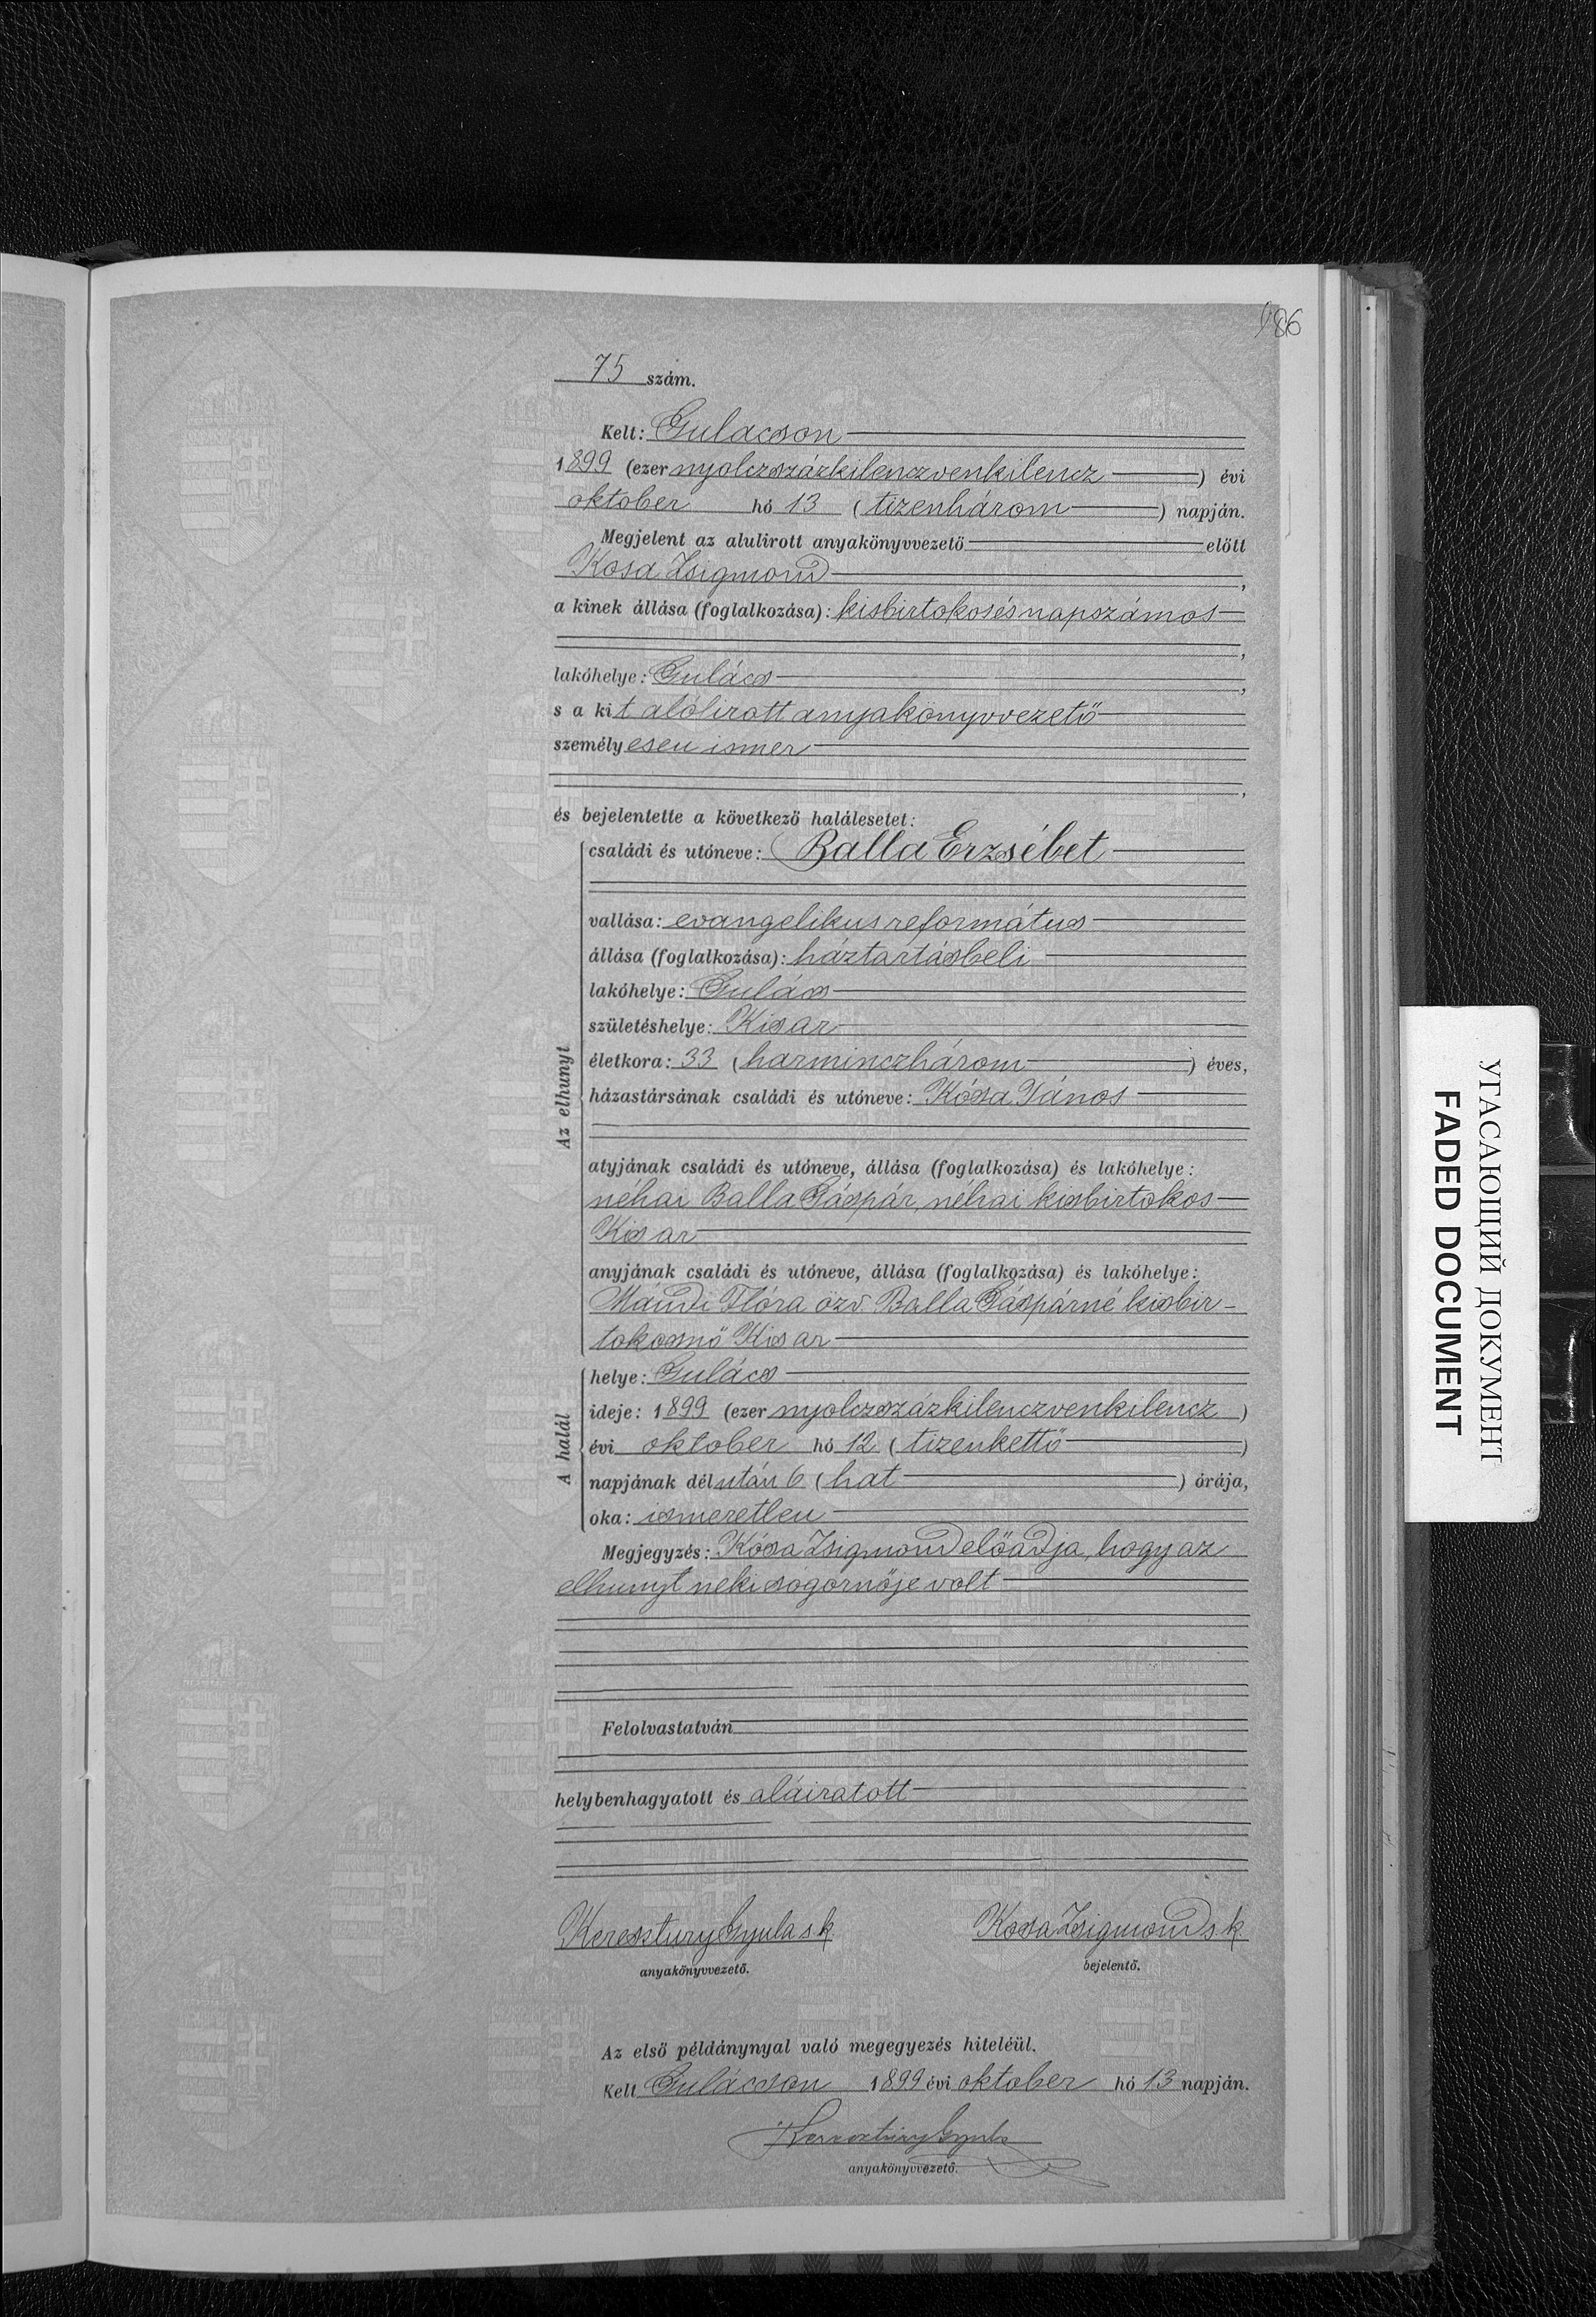 186
75 szám.
Kelt: Gulacson
1899 (ezer nyolczszázkilenczvenkilencz) évi
oktober hó 13 (tizenhárom) napján.
Megjelent az alulirott anyakönyvvezető előtt
Kosa Zsigmond,
a kinek állása (foglalkozása): kisbirtokos és napszámos
,
lakóhelye: Gulács,
s a kit alólirott anyakönyvvezető
személyesen ismer
,
és bejelentette a következő halálesetet:
Az elhunyt
családi és utóneve: Balla Erzsébet
vallása: evangelikus református
állása (foglalkozása): háztartásbeli
lakóhelye: Gulács
születéshelye: Kisar
életkora: 33 (harminczhárom) éves,
házastársának családi és utóneve: Kósa János
atyjának családi és utóneve, állása (foglalkozása) és lakóhelye:
néhai Balla Gáspár, néhai kisbirtokos
Kisar
anyjának családi és utóneve, állása (foglalkozása) és lakóhelye:
Mándi Flóra özv Balla Gáspárné kisbir-
tokosnő Kisar
A halál
helye: Gulács
ideje: 1899 (ezer nyolczszázkilenczvenkilencz)
évi oktober hó 12 (tizenkettő)
napjának délután 6 (hat) órája,
oka: ismeretlen
Megjegyzés: Kósa Zsigmond előadja, hogy az
elhunyt neki sogornője volt
Felolvastatván
helybenhagyatott és aláiratott
Keresztury Gyula sk Kosa Zsigmond s.k
anyakönyvvezető. bejelentő.
Az első példánynyal való megegyezés hiteléül.
Kelt Gulácson 1899 évi oktober hó 13 napján.
Keresztury Gyula
anyakönyvvezető.
УГАСАЮЩИЙ ДОКУМЕНТ
FADED DOCUMENT